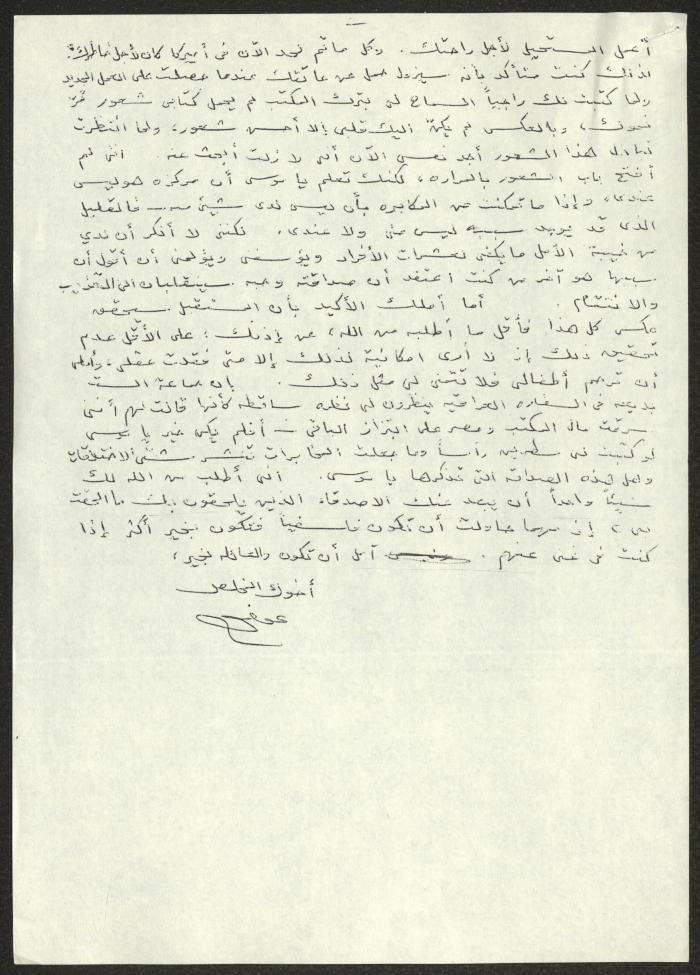 أعمل المستحيل لأجل راحتك. وكل ما تم لحد الآن في أميركا كان لأجل خاطرك
لذلك كنت متأكد بأنه سيزول حمل عن عاتقك عندما حصلت على العمل الجديد
ولما كتبت لك راجياً السماح لي بترك المكتب لم يحمل كتابي شعور
نحوك، وبالعكس لم يكن إليك قلبي إلا أحسن شعور، ولما انتظرت
تبادل هذا الشعور أجد نفسي الآن أني لا زلت أبحث عنه. انني لم
أفتح باب الشعور بالمراره، لكنك تعلم يا موسى أن مركزه هو ليس
عندي، وإذا ما تمكنت من المكابره بأن ليس لدي شيئ منه فالقليل
الذي قد يوجد سببه ليس مني ولا عندي. لكنني لا أنكر أن لدي
من خيبة الأمل ما يكفي لعشرات الأفراد ويؤسفني ويؤلمني أن أقول أن
سببها هو آخر من كنت أعتقد أن صداقته وحبه سينقلبان الى
والانتقام. أما أملك الأكيد بأن المستقبل سيحقق
عكس كل هذا فأقل ما أطلبه من الله، عن إذنك، على الأقل عدم
تحقيق ذلك إذ لا أرى امكانية لذلك إلا متى فقدت عقلي، وأملي
أن ترحم أطفالي فلا تتمنى لي مثل ذلك. بأن جماعة الست
بديعه في السفاره العراقيه ينظرون لي نظره ساقطه كأنها قالت لهم أنني
سرقت مال المكتب ومصر على ابتزاز الباقي أفلم يكن خير يا موسى
لو كتبت لي رأساً وما جعلت المخابرات تنشر شتى الاختلاقات
وهل هذه الصداقه التي تذكرها يا موسى. انني أطلب من الله لك
شيئاً واحداً أن يبعد عنك الاصدقاء الذين يلحقون بك ما ألحقت
بي، إذ مهما حاولت أن تكون فلسفياً فتكون بخير أكثر إذا
كنت في غنى عنهم. آمل أن تكون والعائله بخير،
أخوك المخلص
عوني